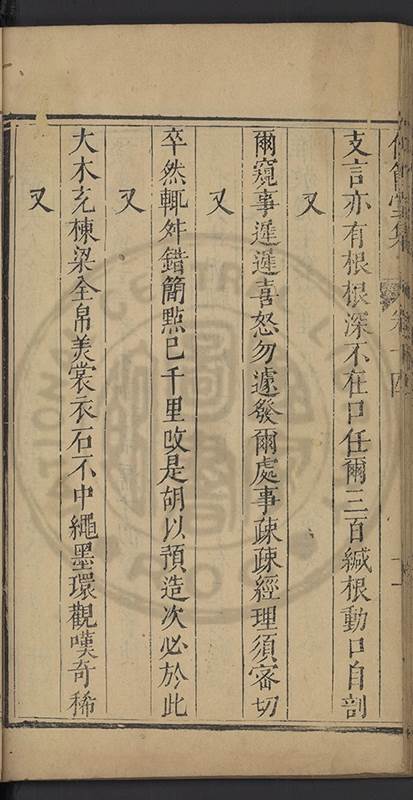 支言亦有根根深不在口任爾三百緘根動口自剖
又
爾窺事遲遲喜怒勿遽發爾處事疎疎經理須密切
又
卒然輒舛錯簡點已千里改是胡以預造次必於此
又
大木充棟梁全帛美裳衣石不中繩墨環觀嘆奇稀
又